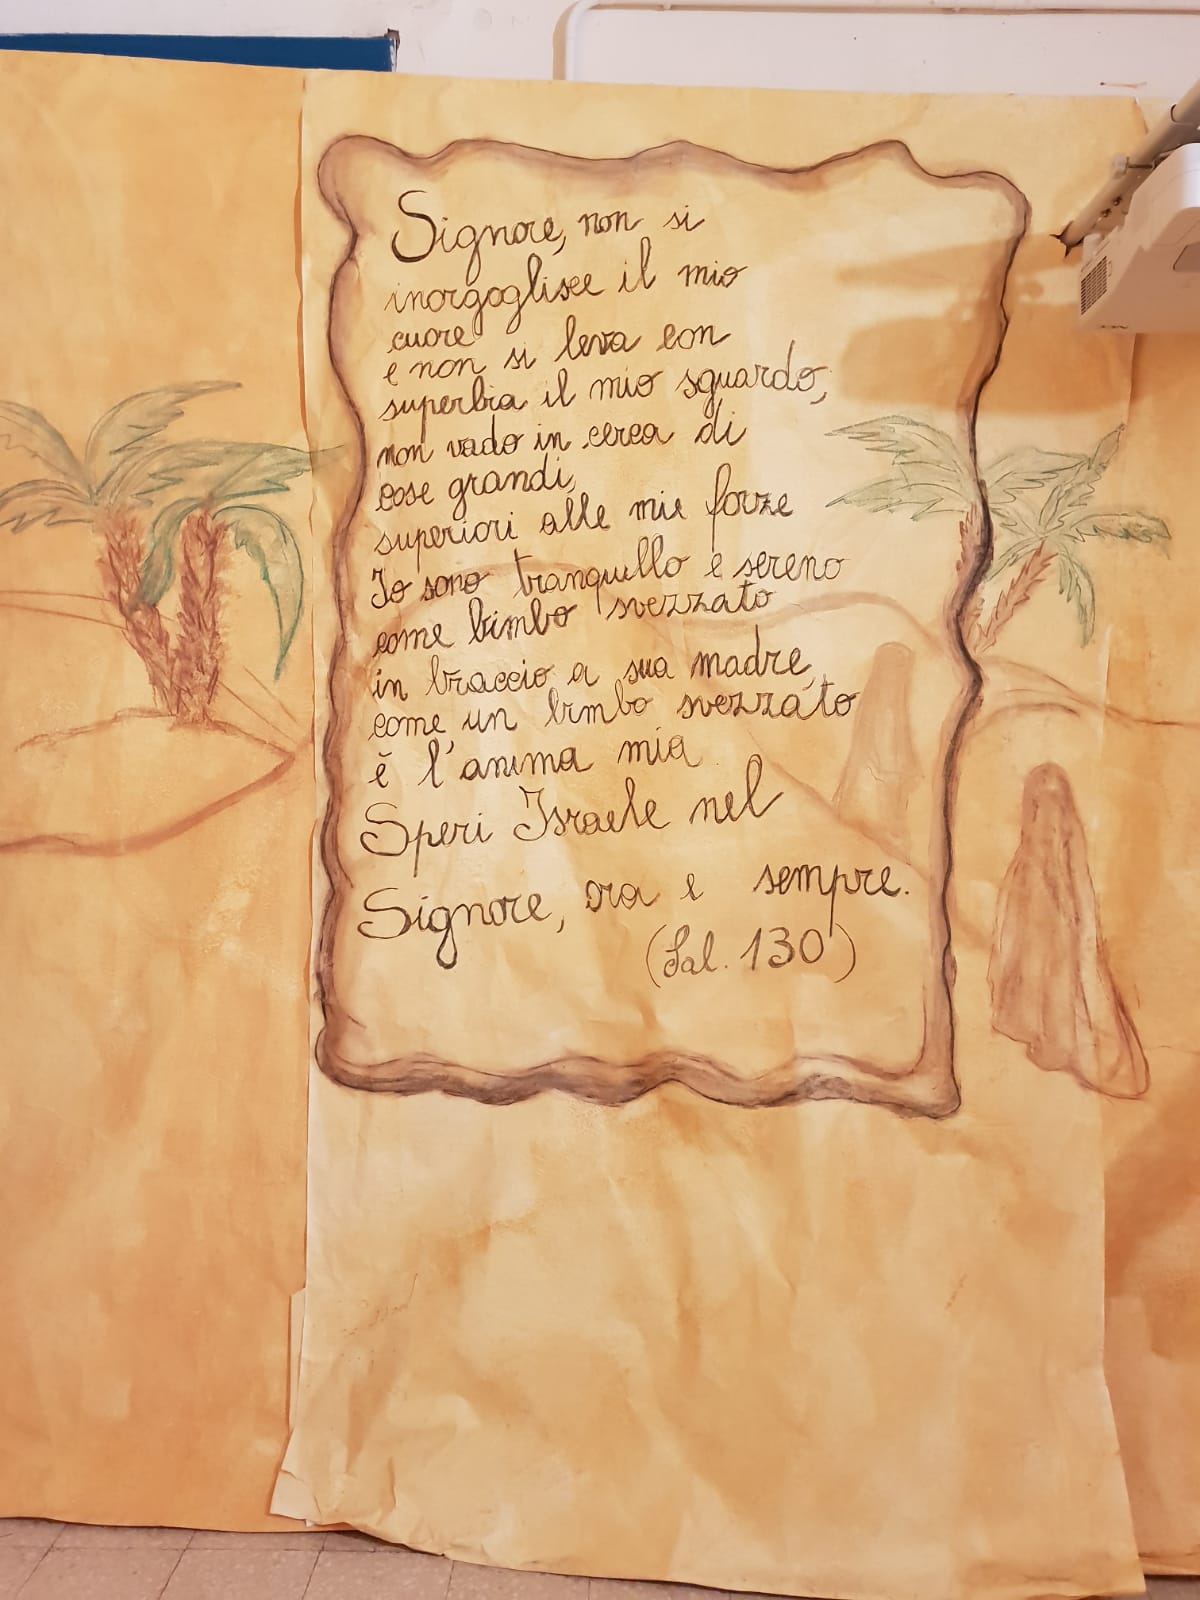 Signore, non si
inorgoglisce il mio
cuore
e non si leva con
superbia il mio sguardo,
non vado in cerca di
cose grandi,
superiori alle mie forze
Io sono tranquillo e sereno
come bimbo svezzato
in braccio a sua madre,
come un bimbo svezzato
è l'anima mia.
Speri Israele nel
Signore, ora e sempre.
(Sal. 130)